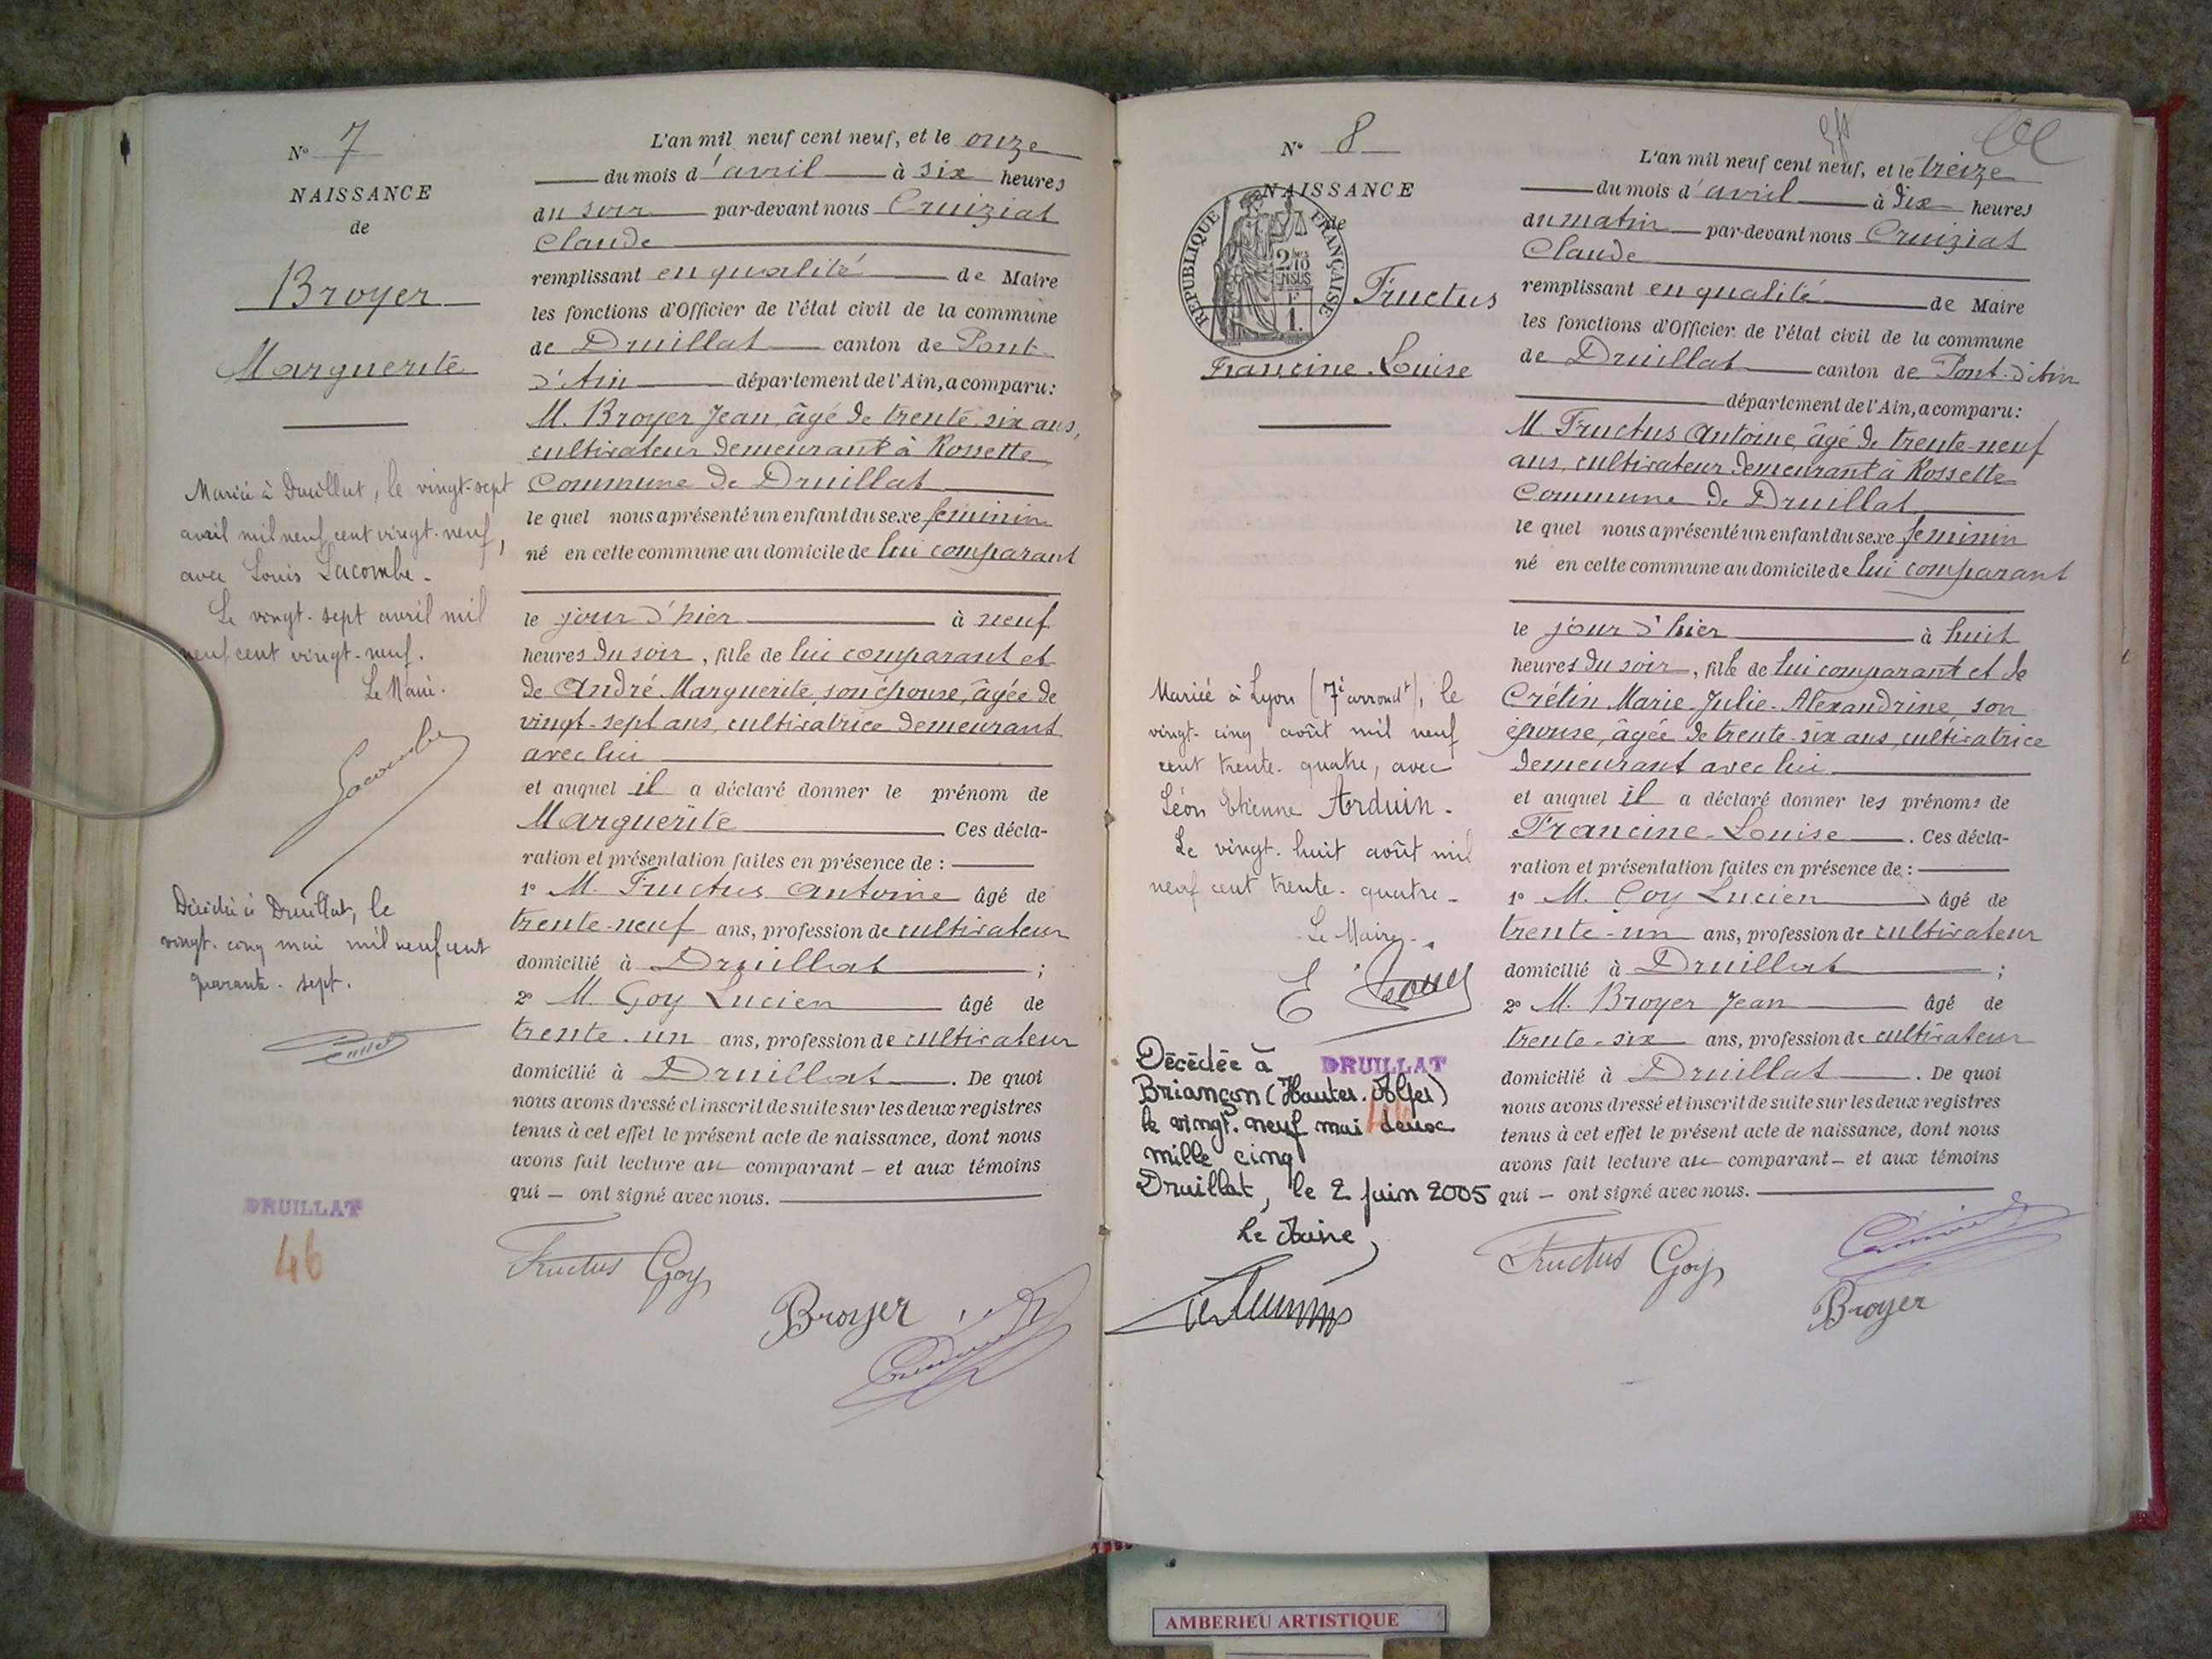 N° 7
NAISSANCE
de
Broyer
Marguerite
Mariée à Druillat, le vingt-sept
avril mil neuf cent vingt-neuf,
avec Louis Lacombe.
Le vingt-sept avril mil
neuf cent vingt-neuf.
Le Maire.
Lacombe
Décédée à Druillat, le
vingt-cinq mai mil neuf cent
quarante-sept.
DRUILLAT
46
L'an mil neuf cent neuf, et le onze
du mois d'avril à six heures
du soir par-devant nous Cruiziat
Claude
remplissant en qualité de Maire
les fonctions d'Officier de l'état civil de la commune
de Druillat canton de Pont-
d'Ain département de l'Ain, a comparu:
M. Broyer Jean, âgé de trente-six ans,
cultivateur demeurant à Rossette
Commune de Druillat
le quel nous a présenté un enfant du sexe feminin
né en cette commune au domicile de lui comparant
le jour d'hier à neuf
heures du soir, fille de lui comparant et
de André Marguerite, son épouse, âgée de
vingt-sept ans, cultivatrice demeurant
avec lui
et auquel il a déclaré donner le prénom de
Marguerite Ces décla-
ration et présentation faites en présence de :
1° M. Fructus Antoine âgé de
trente-neuf ans, profession de cultivateur
domicilié à Druillat ;
2° M. Goy Lucien âgé de
trente-un ans, profession de cultivateur
domicilié à Druillat. De quoi
nous avons dressé et inscrit de suite sur les deux registres
tenus à cet effet le présent acte de naissance, dont nous
avons fait lecture au comparant - et aux témoins
qui - ont signé avec nous.
Fructus Goy
Broyer
N° 8
NAISSANCE
de
REPUBLIQUE FRANÇAISE
2/10
EN SUS
1.
Fructus
Francine-Louise
Mariée à Lyon (7e arrondt), le
vingt-cinq août mil neuf
cent trente-quatre, avec
Léon Etienne Arduin.
Le vingt-huit août mil
neuf cent trente-quatre.
Le Maire.
Décédée à DRUILLAT
Briançon (Hautes-Alpes)
le vingt-neuf mai deux
mille cinq
Druillat, le 2 juin 2005
Le Maire,
L'an mil neuf cent neuf, et le treize
du mois d'avril à dix heures
du matin par-devant nous Cruiziat
Claude
remplissant en qualité de Maire
les fonctions d'Officier de l'état civil de la commune
de Druillat canton de Pont-d'Ain
département de l'Ain, a comparu:
M. Fructus Antoine, âgé de trente-neuf
ans, cultivateur demeurant à Rossette
Commune de Druillat
le quel nous a présenté un enfant du sexe feminin
né en cette commune au domicile de lui comparant
le jour d'hier à huit
heures du soir, fille de lui comparant et de
Crétin Marie-Julie-Alexandrine, son
épouse, âgée de trente-six ans, cultivatrice
demeurant avec lui
et auquel il a déclaré donner les prénoms de
Francine-Louise. Ces décla-
ration et présentation faites en présence de :
1° M. Goy Lucien âgé de
trente-un ans, profession de cultivateur
domicilié à Druillat ;
2° M. Broyer Jean âgé de
trente-six ans, profession de cultivateur
domicilié à Druillat. De quoi
nous avons dressé et inscrit de suite sur les deux registres
tenus à cet effet le présent acte de naissance, dont nous
avons fait lecture au comparant - et aux témoins
qui - ont signé avec nous.
Fructus Goy
Broyer
AMBERIEU ARTISTIQUE